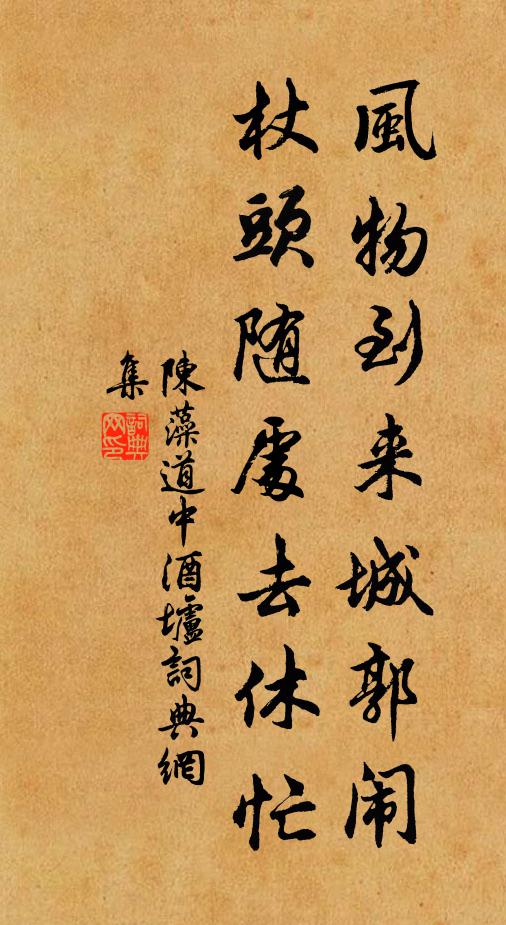 風物到来城郭闹
杖頭随處去休忙
陳藻道中酒壚詞典網
集
詞典网印